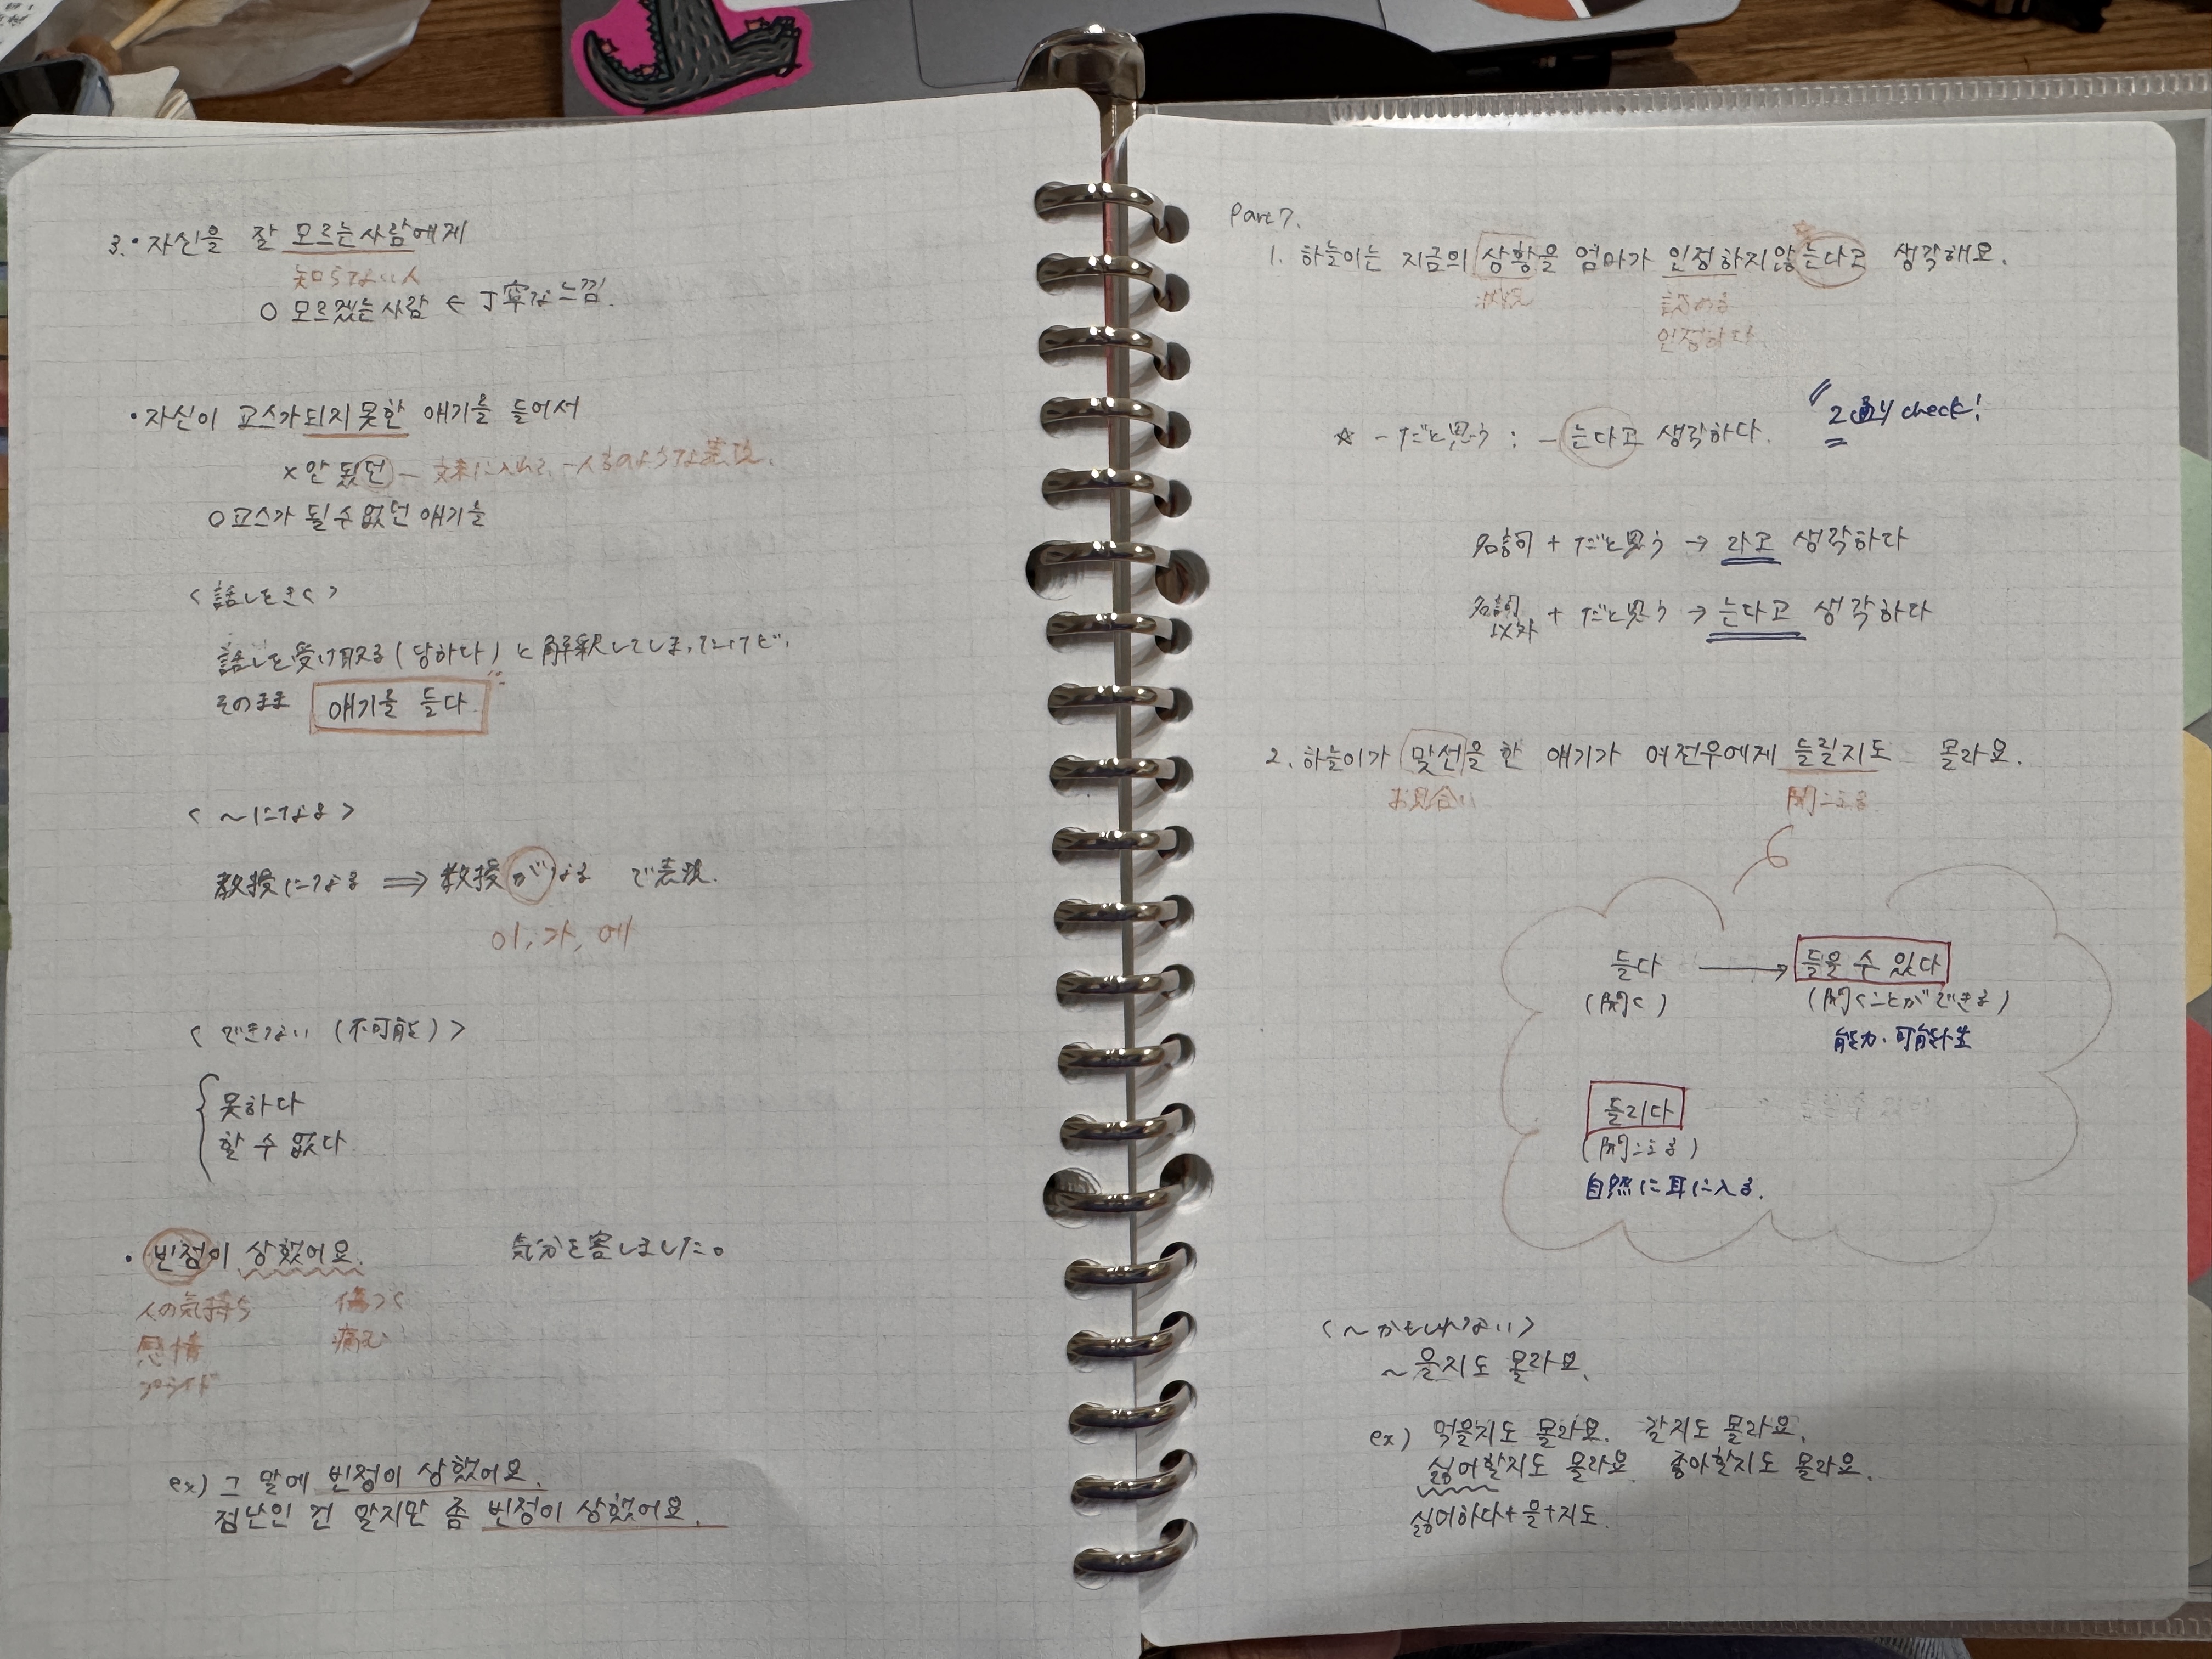 3. ・자신을 잘 모르는사람에게
知らない人
○ 모르겠는사람 ← 丁寧な느낌.
・자신이 교스가되지못한 얘기를 들어서
× 안 됐던 — 文末に入れる、一人言のような表現.
○교스가 될수없던 얘기를
<話しをきく>
話しを受け取る(당하다)と解釈してしまったけど、
そのまま 얘기를 듣다
<〜になる>
教授になる ⇒ 教授がなる で表現.
이, 가, 에
<できない (不可能)>
못하다
할 수 없다
・빈정이 상했어요. 気分を害しました。
人の気持ち 傷つく
感情 痛む
プライド
ex) 그 말에 빈정이 상했어요.
점난인 건 알지만 좀 빈정이 상했어요.
Part7.
1. 하늘이는 지금의 상황을 엄마가 인정하지않는다고 생각해요.
状況 認める
인정하다.
2通り check!
☆ -だと思う : -는다고 생각하다.
名詞 + だと思う → 라고 생각하다
名詞以外 + だと思う → 는다고 생각하다
2. 하늘이가 맞선을 한 얘기가 여전우에게 들릴지도 몰라요.
お見合い 聞こえる
듣다 → 들을 수 있다
(聞く) (聞くことができる)
能力・可能性
들리다
(聞こえる)
自然に耳に入る.
<〜かもしれない>
〜을지도 몰라요.
ex) 먹을지도 몰라요. 갈지도 몰라요.
싫어할지도 몰라요. 좋아할지도 몰라요.
싫어하다+을+지도.